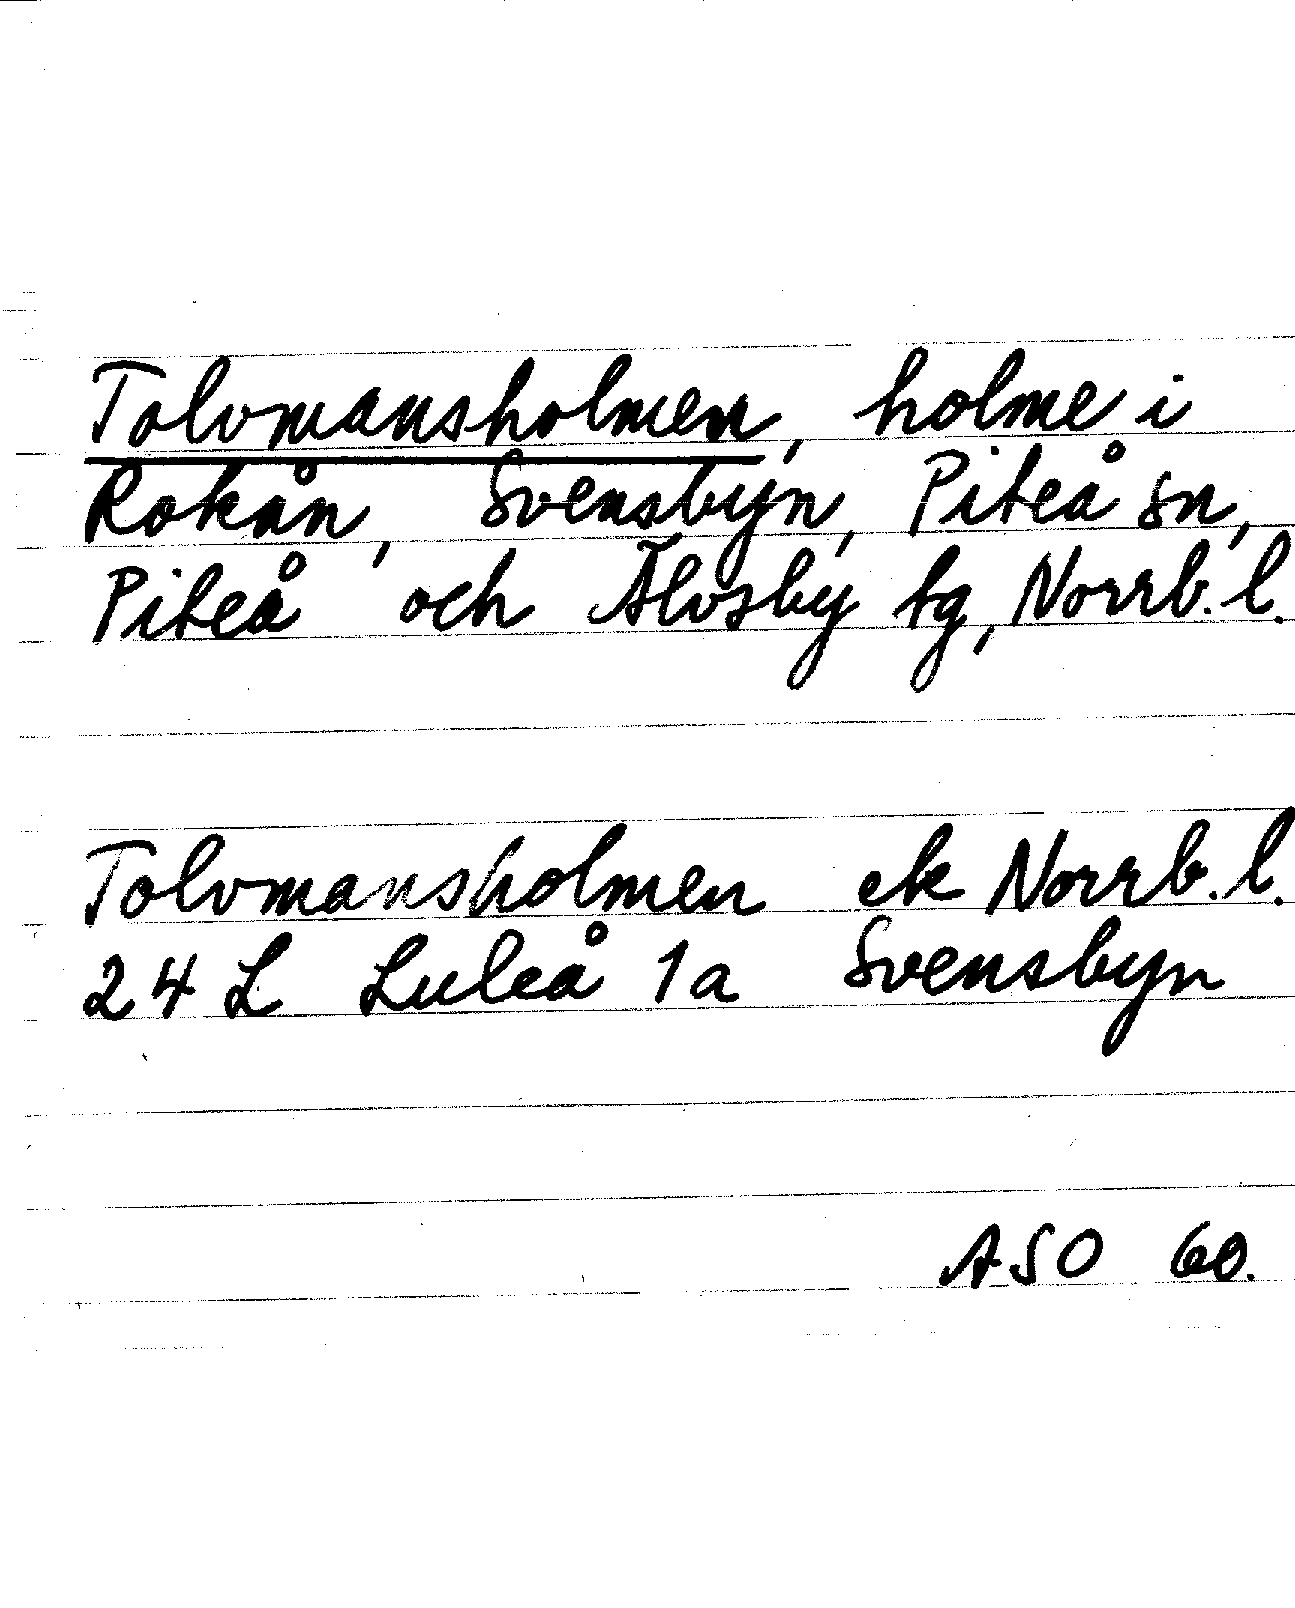 Tolvmansholmen, holme i
Rokån, Svensbyn, Piteå sn,
Piteå och Älvsby tg, Norrb. l.
Tolvmansholmen ek Norrb. l.
24 L Luleå 1a Svensbyn
ASO 60.